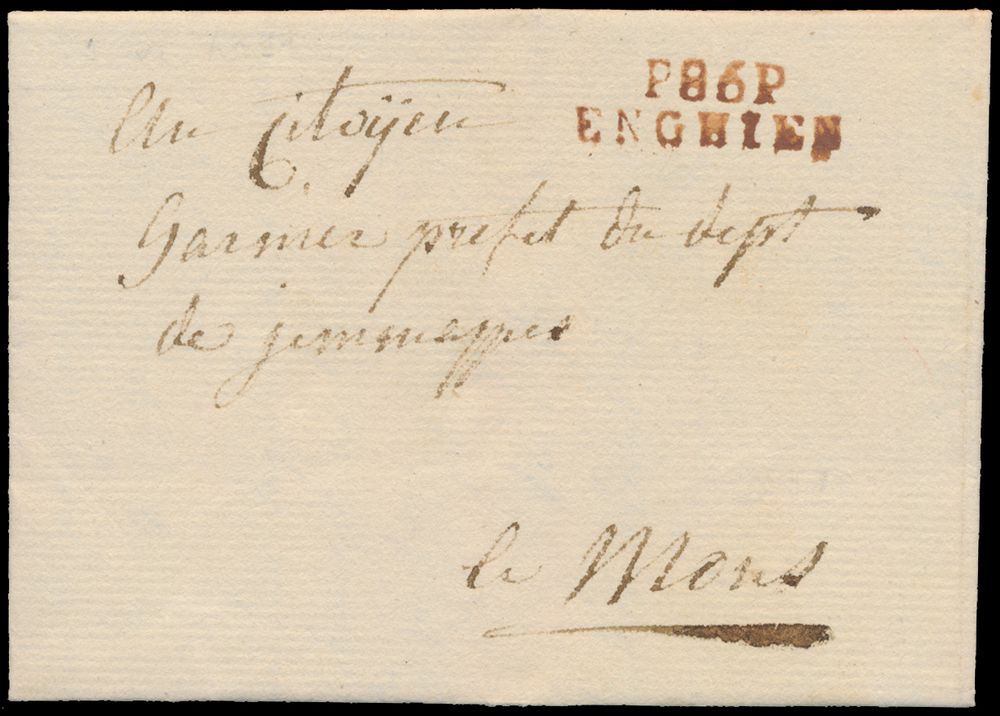 P86P
ENGHIEN
Au Citoÿen
Garnier prefet du dept
de jemmappes
a Mons